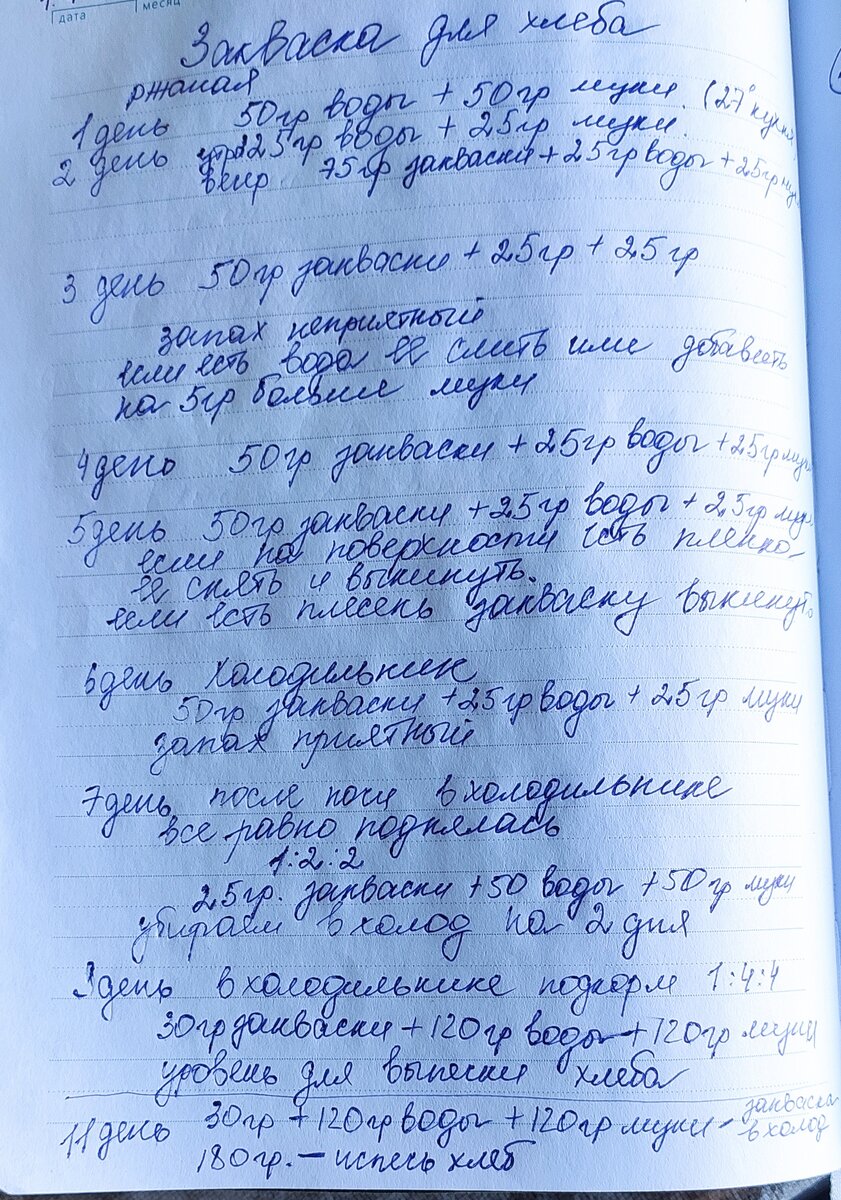 дата месяц
Закваска для хлеба
ржаная
1 день 50гр воды + 50гр муки. (27°
2 день утро 25гр воды + 25гр муки.
вечр 75гр закваски + 25гр воды + 25гр
3 день 50гр закваски + 25гр + 25гр
запах неприятный
если есть вода ее слить или добавить
на 5гр больше муки
4 день 50гр закваски + 25гр воды + 25гр
5 день 50гр закваски + 25гр воды + 25гр
если на поверхности есть пленка
ее снять и выкинуть.
если есть плесень закваску выкинуть
6 день Холодильник
50гр закваски + 25гр воды + 25гр муки
запах приятный
7 день после ночи в холодильнике
все равно поднялась
1:2:2
25гр. закваски + 50 воды + 50гр муки
убираем в холод на 2 дня
день в холодильнике подкорм 1:4:4
30гр закваски + 120гр воды + 120гр муки
уровень для выпечки хлеба
11 день 30гр + 120гр воды + 120гр муки - закваска в холод
180гр. - испечь хлеб